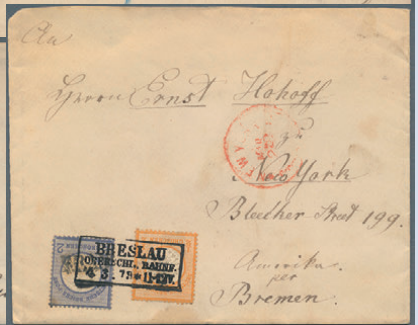 An
Herrn Ernst Hohoff
zu
New York
Bleecher Street 199.
Amerika
per
Bremen.
BRESLAU
OBERSCHL. BAHNH.
4 3. 73 * 11-12V.
2